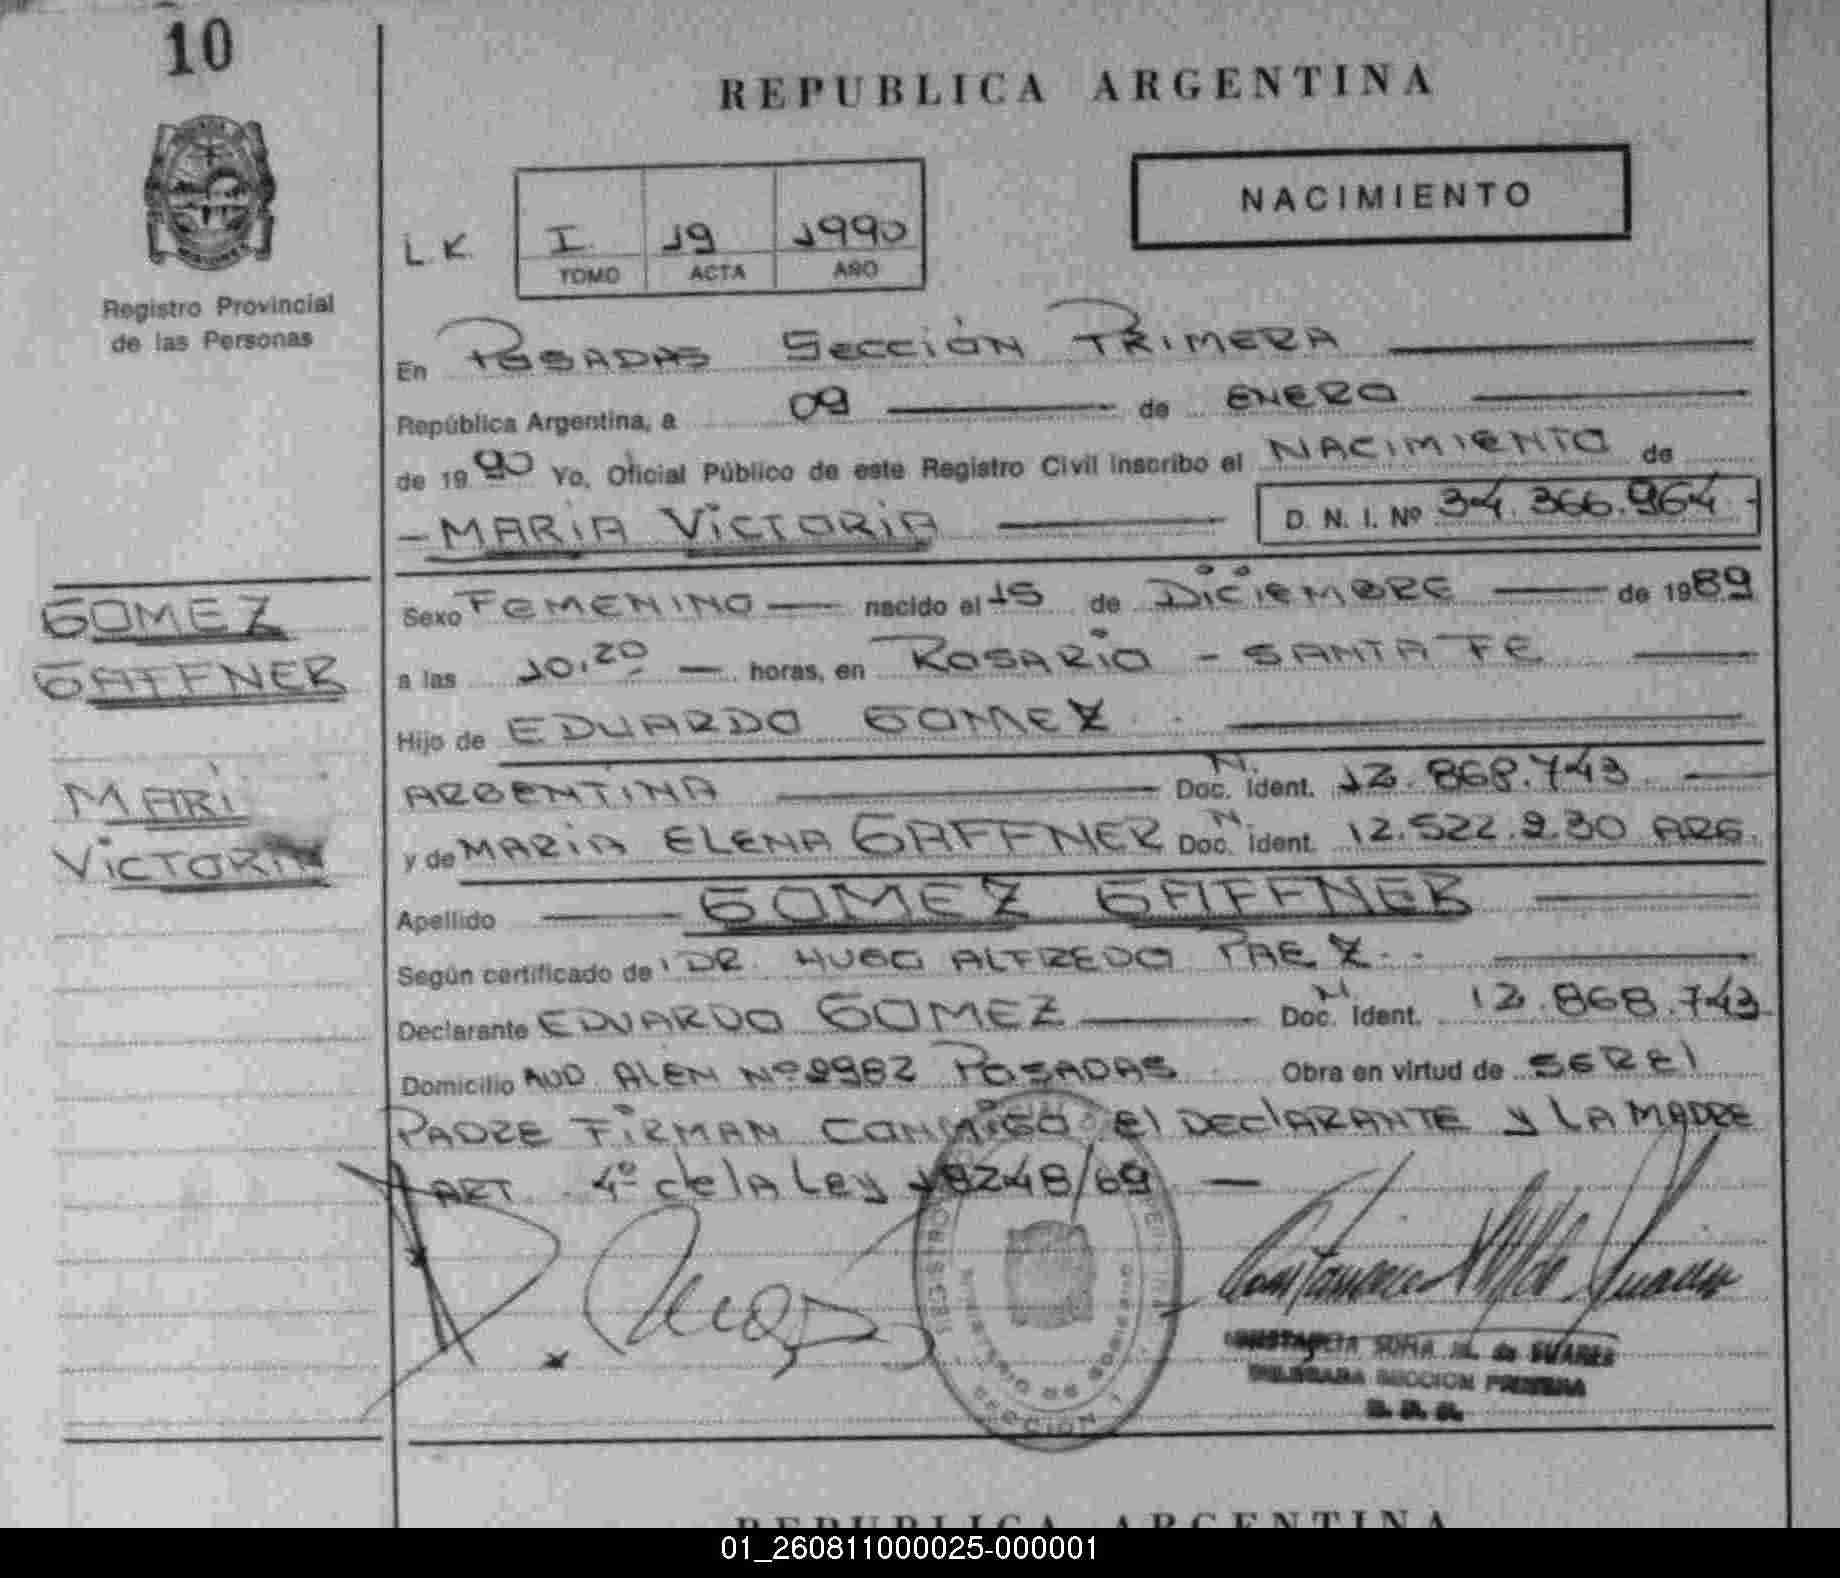 10
REPUBLICA ARGENTINA
NACIMIENTO
L.K. I 19 1990
TOMO ACTA AÑO
Registro Provincial
de las Personas
En POSADAS SECCIÓN PRIMERA
República Argentina, a 09 de ENERO
de 1990 Yo, Oficial Público de este Registro Civil inscribo el NACIMIENTO de
- MARIA VICTORIA D. N. I. Nº 34.366.964
GOMEZ
GAFFNER
MARI
VICTORIA
Sexo FEMENINO nacido el 15 de DICIEMBRE de 1989
a las 10.20 horas, en ROSARIO - SANTA FE
Hijo de EDUARDO GOMEZ
ARGENTINA Doc. N. Ident. 12.868.743
y de MARIA ELENA GAFFNER Doc. N. Ident. 12.522.930 ARG.
Apellido GOMEZ GAFFNER
Según certificado de DR. HUGO ALFREDO PAEZ
Declarante EDUARDO GOMEZ Doc. N Ident. 12.868.743
Domicilio AVD ALEN Nº 2982 POSADAS Obra en virtud de SER EL
PADRE FIRMAN CONMIGO El DEClARANTE y LA MADRE
ART 4º de lA Ley 18248/69
CONSTANCIA SOFIA M. de SUARES
DELEGADA SECCION PRIMERA
SECCION 1
REPUBLICA ARGENTINA
01_260811000025-000001